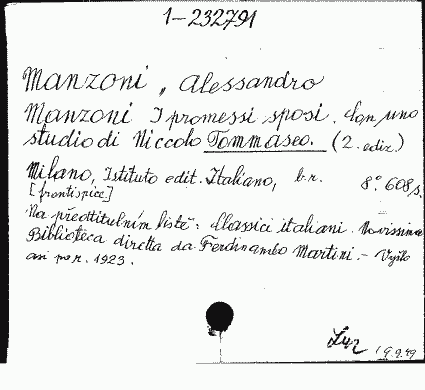 1-232791
Manzoni, Alessandro
Manzoni I promessi sposi. Con uno
studio di Niccolo Tommaseo. (2. ediz.)
Milano, Istituto edit. Italiano, b.r. 8°. 608 s.
[frontispice]
Na předtitulním listě: Classici italiani. Novissima
Biblioteca diretta da Ferdinambo Martini. - Vyšlo
asi po r. 1923.
19.9.49